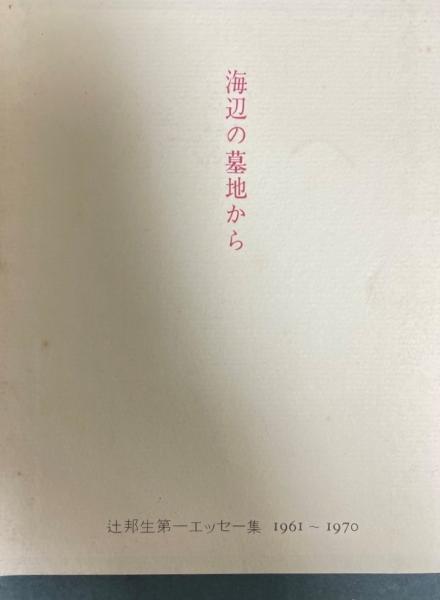 海辺の墓地から
辻邦生第一エッセー集 1961～1970